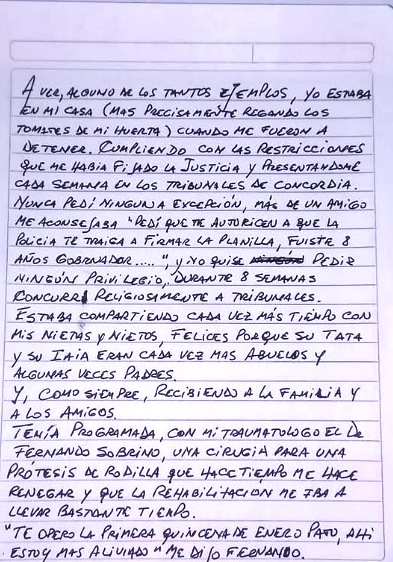 A VER, ALGUNO DE LOS TANTOS EJEMPLOS, YO ESTABA
EN MI CASA (MAS PRECISAMENTE REGANDO LOS
TOMATES DE MI HUERTA) CUANDO ME FUERON A
DETENER. CUMPLIENDO CON LAS RESTRICCIONES
QUE ME HABIA FIJADO LA JUSTICIA Y PRESENTANDOME
CADA SEMANA EN LOS TRIBUNALES DE CONCORDIA.
NUNCA PEDÍ NINGUNA EXCEPCIÓN, MÁS DE UN AMIGO
ME ACONSEJABA "PEDÍ QUE TE AUTORICEN A QUE LA
POLICIA TE TRAIGA A FIRMAR LA PLANILLA, FUISTE 8
AÑOS GOBERNADOR.....", Y NO QUISE PEDIR
NINGÚN PRIVILEGIO, DURANTE 8 SEMANAS
CONCURRI RELIGIOSAMENTE A TRIBUNALES.
ESTABA COMPARTIENDO CADA VEZ MÁS TIEMPO CON
MIS NIETAS Y NIETOS, FELICES PORQUE SU TATA
Y SU IAIA ERAN CADA VEZ MAS ABUELOS Y
ALGUNAS VECES PADRES.
Y, COMO SIEMPRE, RECIBIENDO A LA FAMILIA Y
A LOS AMIGOS.
TENÍA PROGRAMADA, CON MI TRAUMATOLOGO EL Dr
FERNANDO SOBRINO, UNA CIRUGIA PARA UNA
PRÓTESIS DE RODILLA QUE HACE TIEMPO ME HACE
RENEGAR Y QUE LA REHABILITACION ME IBA A
LLEVAR BASTANTE TIEMPO.
"TE OPERO LA PRIMERA QUINCENA DE ENERO PATO, AHI
ESTOY MAS ALIVIADO" ME DIJO FERNANDO.